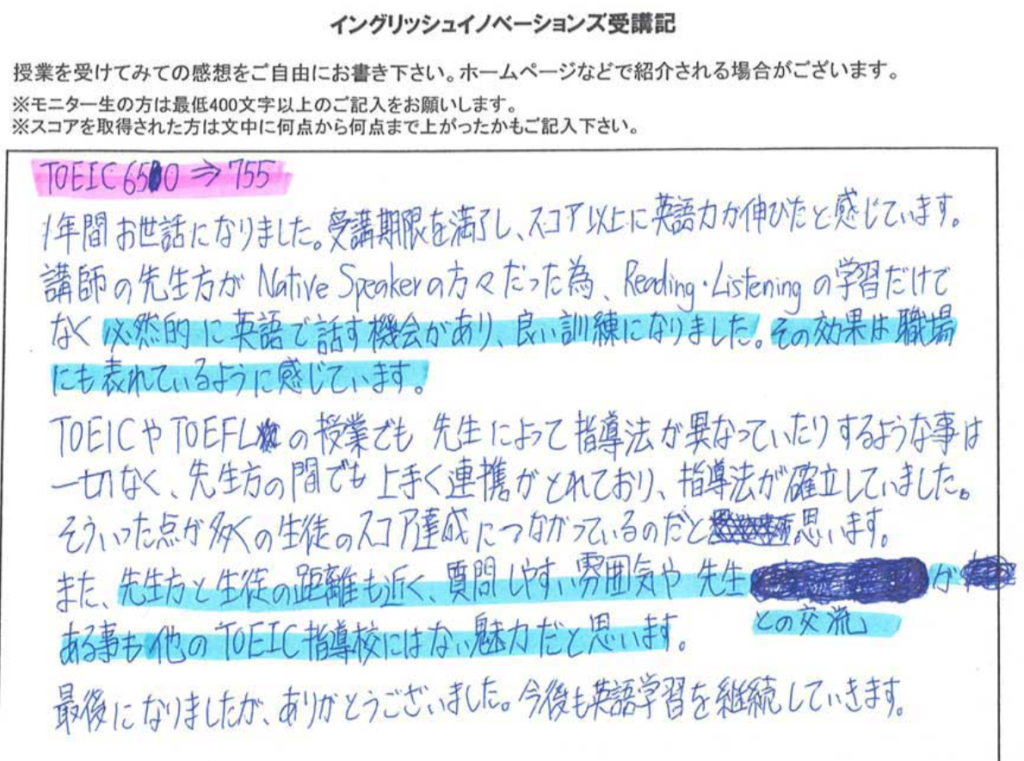 イングリッシュイノベーションズ受講記
授業を受けてみての感想をご自由にお書き下さい。ホームページなどで紹介される場合がございます。
※モニター生の方は最低400文字以上のご記入をお願いします。
※スコアを取得された方は文中に何点から何点まで上がったかもご記入下さい。
TOEIC 650 ⇒ 755
1年間お世話になりました。受講期限を満了し、スコア以上に英語力が伸びたと感じています。
講師の先生方が Native Speakerの方々だった為、Reading・Listening の学習だけで
なく必然的に英語で話す機会があり、良い訓練になりました。その効果は職場
にも表れているように感じています。
TOEICやTOEFLの授業でも先生によって指導法が異なっていたりするような事は
一切なく、先生方の間でも上手く連携がとれており、指導法が確立していました。
そういった点が多くの生徒のスコア達成につながっているのだと思います。
また、先生方と生徒の距離も近く、質問しやすい雰囲気や先生が
との交流
ある事も他のTOEIC指導校にはない魅力だと思います。
最後になりましたが、ありがとうございました。今後も英語学習を継続していきます。